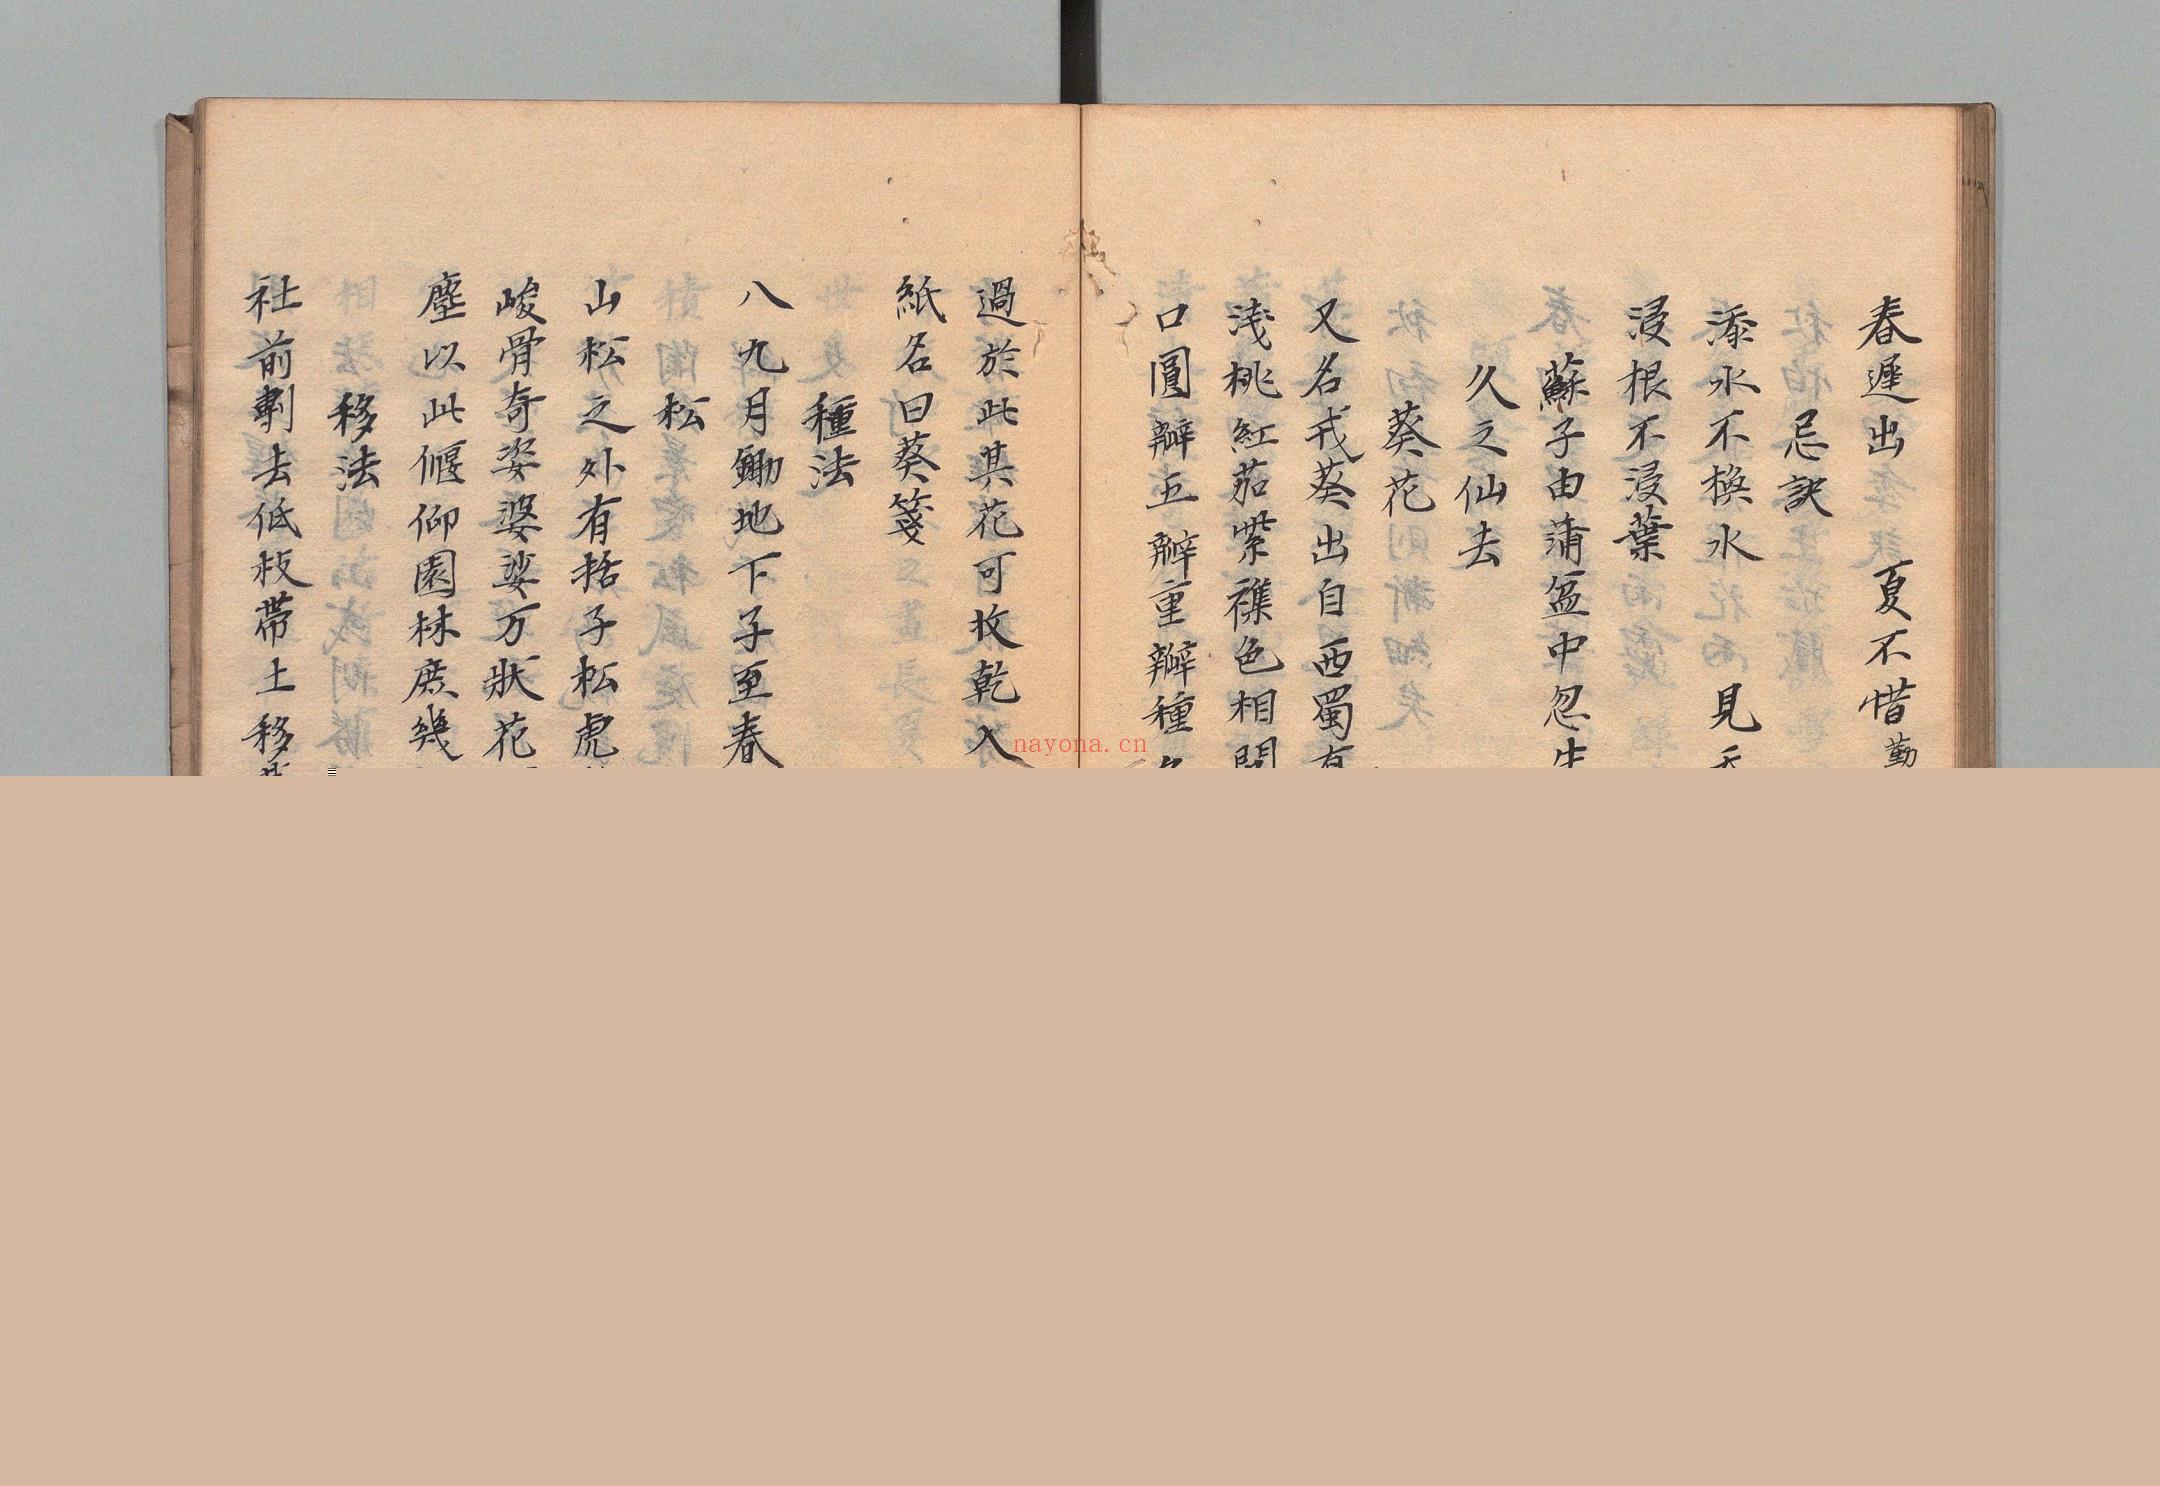 春遲出 夏不惜 勤
忌訣
添水不換水 見天
浸根不浸葉
蘇子由蒲盆中忽生
久之仙去
葵花
又名戎葵出自西蜀有
淺桃紅茄紫襍色相間
口圓瓣五瓣重瓣種
過於此其花可收乾入
紙名曰葵箋
種法
八九月鋤地下子至春
松
山松之外有栝子松虎
峻骨奇姿婆娑万狀花
塵以此偃仰園林庶幾
移法
社前剸去低枝帶土移
nayona.cn